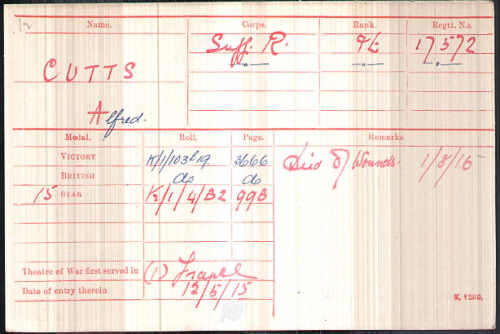 Name. Corps. Rank. Regtl. No.
CUTTS Suff. R. Pte 17572
Alfred. " " "
Medal. Roll. Page. Remarks
VICTORY K/1/103B19 3666 Died of Wounds. 1/8/16
BRITISH do do
15 STAR K/1/4/B2 99B
Theatre of War first served in (1) France
Date of entry therein 12/5/15
K. 1380.